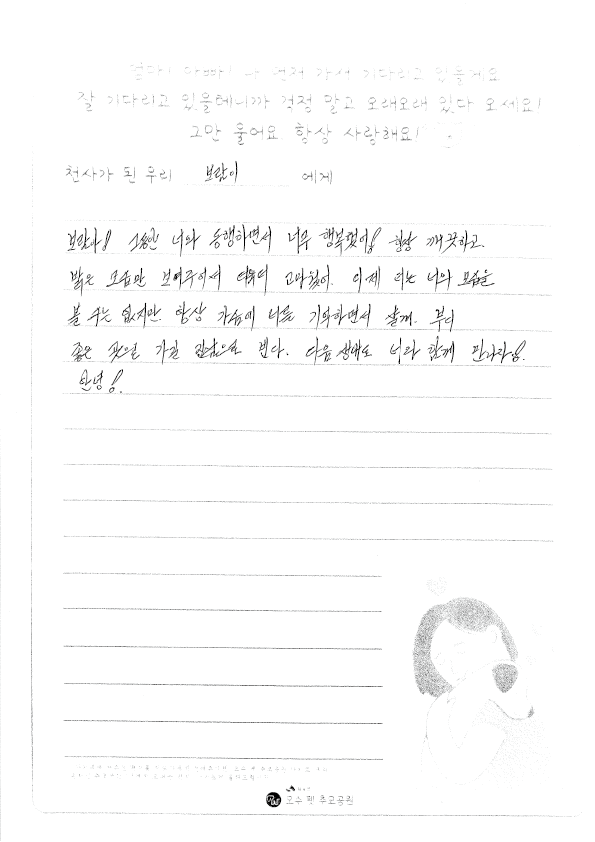 엄마! 아빠! 나 먼저 가서 기다리고 있을게요
잘 기다리고 있을테니까 걱정 말고 오래오래 있다 오세요!
그만 울어요 항상 사랑해요!
천사가 된 우리 보람이 에게
보람아! 너와 동행하면서 너무 행복했어! 항상 깨끗하고
밝은 모습만 보여주어서 더욱더 고마웠어. 이제 너의 모습을
볼 수는 없지만 항상 가슴에 너를 기억하면서 살께. 부디
좋은 곳으로 가길 진심으로 빈다. 다음 생애도 너와 함께 만나자.
안녕!
오수 펫 추모공원